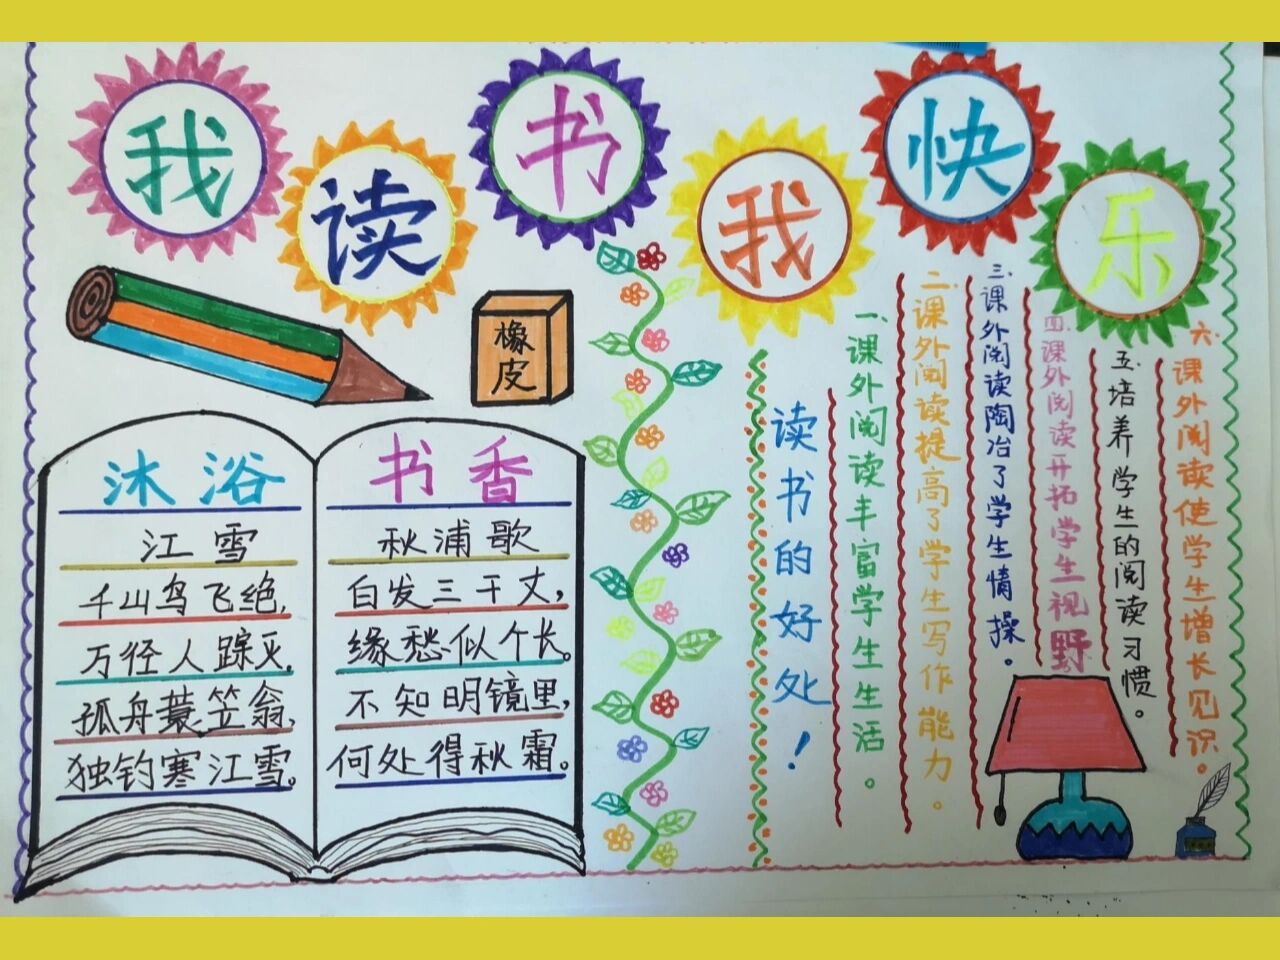 我读书我快乐
橡皮
沐浴书香
江雪
千山鸟飞绝,
万径人踪灭.
孤舟蓑笠翁,
独钓寒江雪。
秋浦歌
白发三千丈,
缘愁似个长。
不知明镜里,
何处得秋霜。
读书的好处!
一.课外阅读丰富学生生活。
二.课外阅读提高了学生写作能力。
三.课外阅读陶冶了学生情操。
四.课外阅读开拓学生视野
五.培养学生的阅读习惯。
六.课外阅读使学生增长见识。